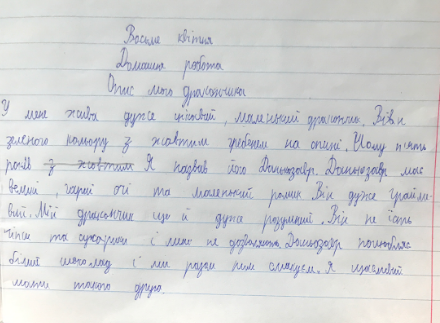 Восьме квітня
Домашня робота
Опис мого дракончика
У мене живе дуже цікавий, маленький дракончик. Він
зеленого кольору з жовтим гребенем на спині. Йому п'ять
років з жовтим Я назвав його Даньозавр. Даньозавр має
великі, гарні очі та маленький ротик. Він дуже грайли-
вий. Мій дракончик ще й дуже розумний. Він не їсть
чіпси та сухарики і мені не дозволяє. Даньозавр полюбляє
білий шоколад і ми разом ним смакуєм. Я щасливий
мати такого друга.